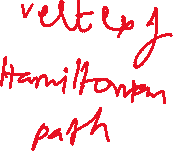 vertex of
Hamiltonian
path